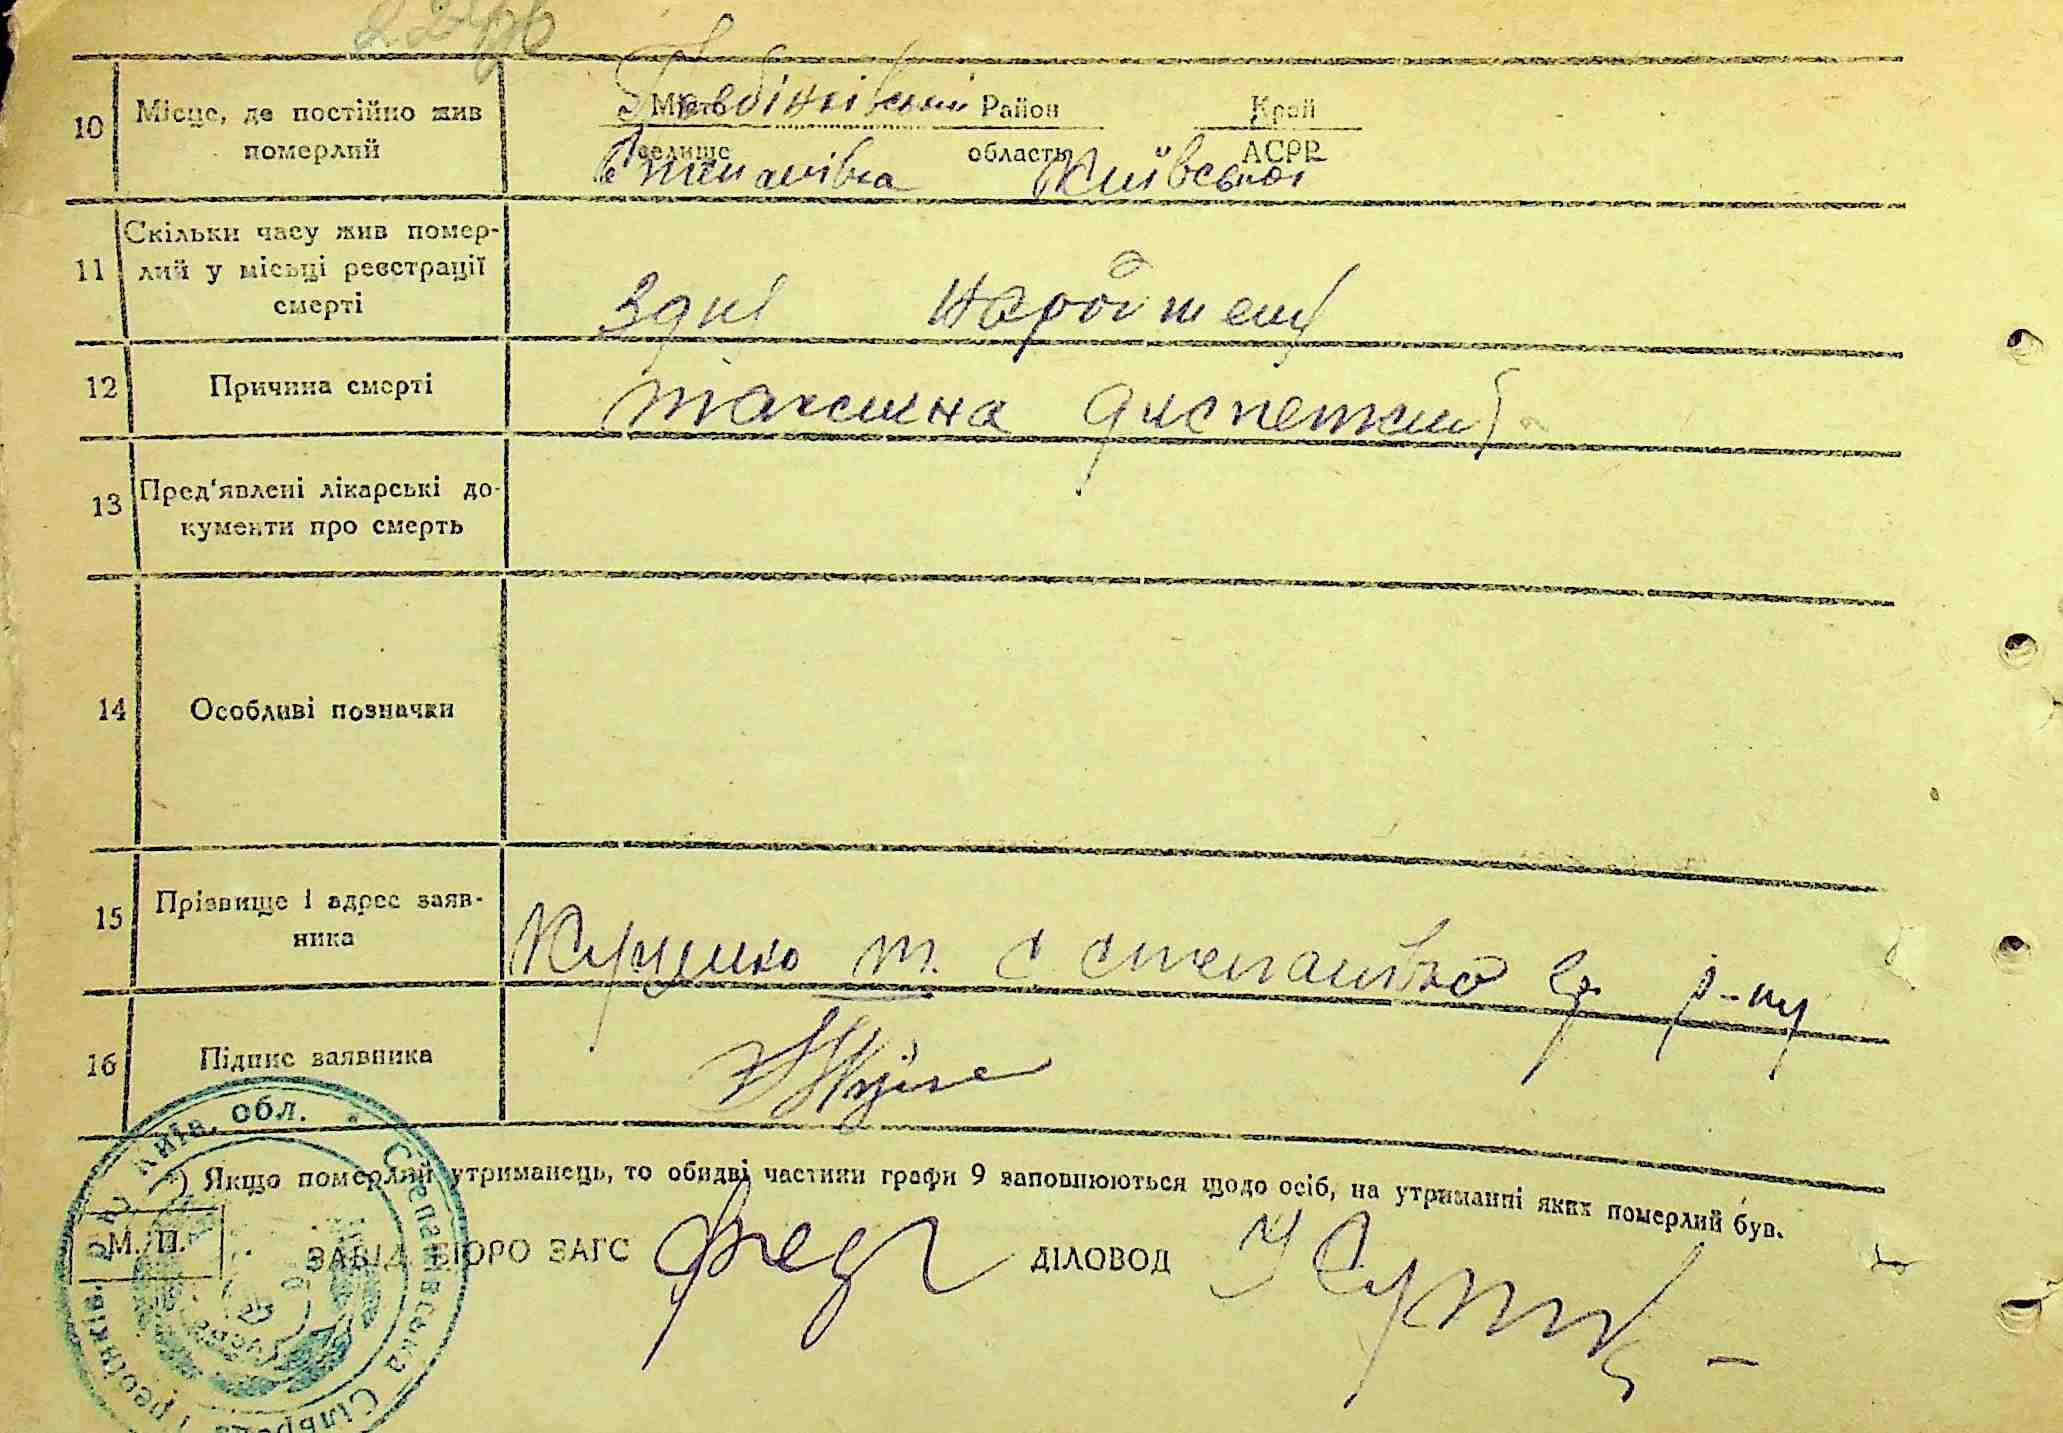 10 Місце, де постійно жив померлий
Місто Гребінківський Район Край
Селище область АСРР
Степанівка Київської
11 Скільки часу жив помер-
лий у місьці реєстрації
смерті
3 дні
12 Причина смерті
токсична диспепсия
13 Пред'явлені лікарські до-
кументи про смерть
14 Особливі позначки
15 Прізвище і адрес заяв-
ника
Куценко т. с степанівка Гр р-ну
16 Підпис заявника
*) Якщо померлий утриманець, то обидві частини графи 9 заповнюються щодо осіб, на утриманні яких померлий був.
М. П. ЗАВІД. БЮРО ЗАГС ДІЛОВОД
Степанівська Сільрада Гребінків. р-ну, Київ. обл.